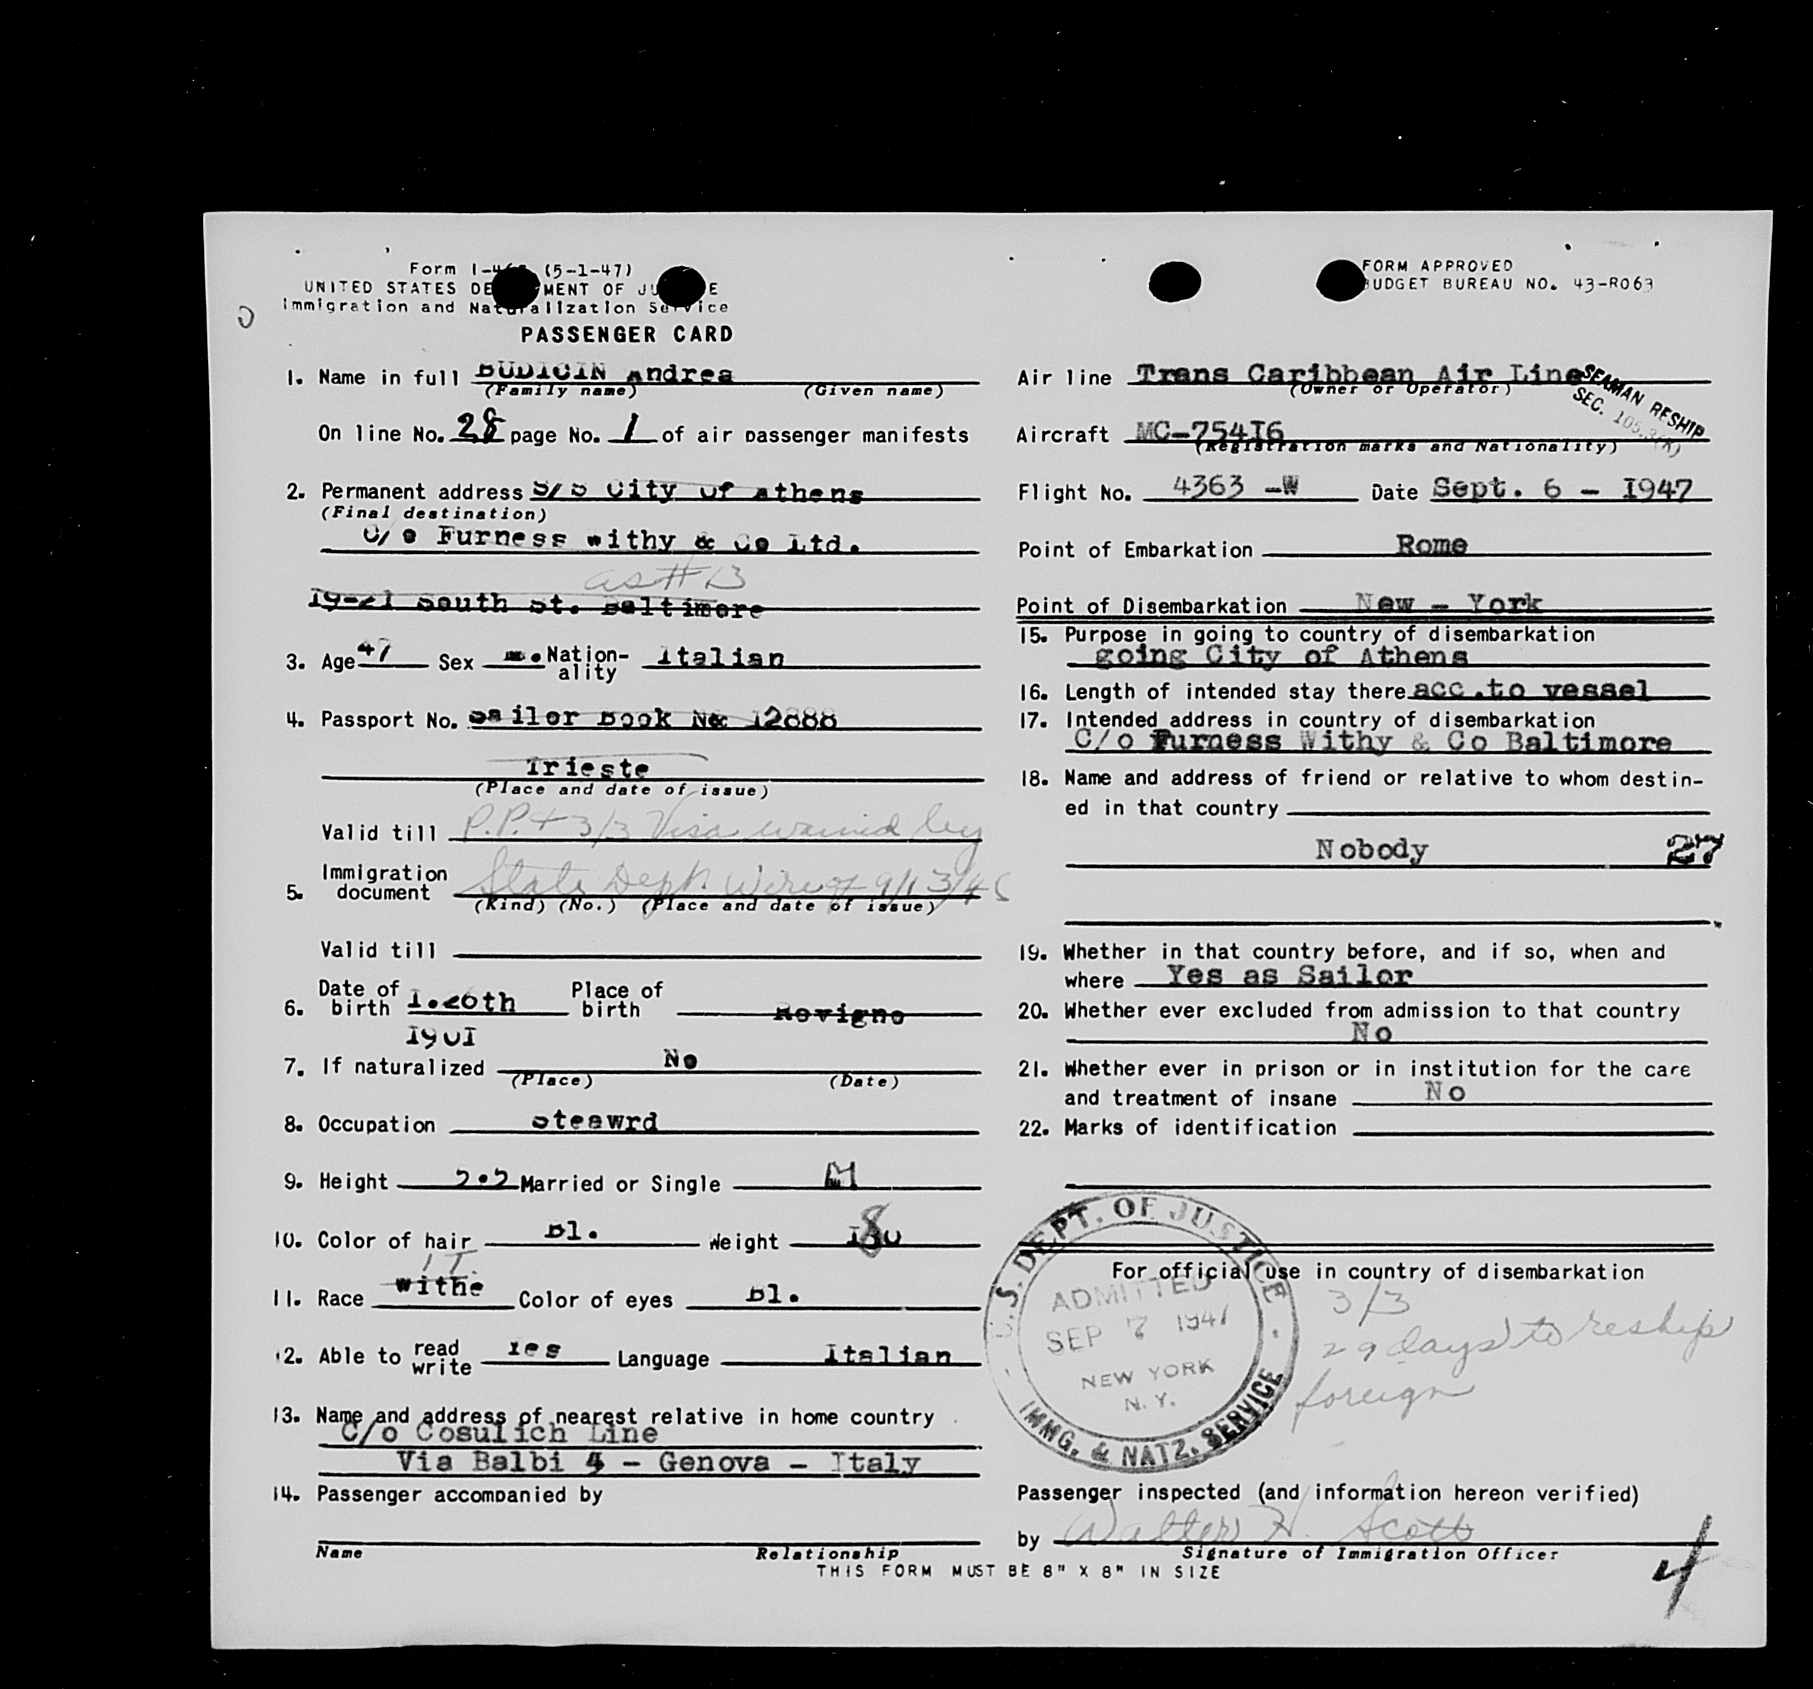 Form I-46 (5-1-47)
UNITED STATES DE MENT OF JU E
Immigration and Naturalization Service
PASSENGER CARD
FORM APPROVED
BUDGET BUREAU NO. 43-R063
1. Name in full BUDICIN Andrea
(Family name) (Given name)
On line No. 28 page No. 1 of air passenger manifests
2. Permanent address S/S City of Athens
(Final destination)
C/o Furness Withy & Co Ltd.
as # 13
19-21 South St. Baltimore
3. Age 47 Sex m. Nation-
ality Italian
4. Passport No. Sailor Book No 12888
Trieste
(Place and date of issue)
Valid till P.P. + 3/3 Visa waived by
5. Immigration
document State Dept. Wire of 9/13/46
(Kind) (No.) (Place and date of issue)
Valid till
6. Date of
birth 1.26th Place of
birth Rovigno
1901
7. If naturalized No
(Place) (Date)
8. Occupation Steawrd
9. Height 5.5 Married or Single M
10. Color of hair Bl. Weight 180
IT.
11. Race Withe Color of eyes Bl.
12. Able to read
write Yes Language Italian
13. Name and address of nearest relative in home country
C/o Cosulich Line
Via Balbi 4 - Genova - Italy
14. Passenger accompanied by
Name Relationship
Air line Trans Caribbean Air Line
(Owner or Operator)
SEAMAN RESHIP
SEC. 105.3(K)
Aircraft MC-75416
(Registration marks and Nationality)
Flight No. 4363 -W Date Sept. 6 - 1947
Point of Embarkation Rome
Point of Disembarkation New - York
15. Purpose in going to country of disembarkation
going City of Athens
16. Length of intended stay there acc.to vessel
17. Intended address in country of disembarkation
C/o Furness Withy & Co Baltimore
18. Name and address of friend or relative to whom destin-
ed in that country
Nobody 27
19. Whether in that country before, and if so, when and
where Yes as Sailor
20. Whether ever excluded from admission to that country
No
21. Whether ever in prison or in institution for the care
and treatment of insane No
22. Marks of identification
For official use in country of disembarkation
U.S. DEPT. OF JUSTICE
ADMITTED
SEP 7 1947
NEW YORK
N. Y.
IMMG. & NATZ. SERVICE
3/3
29 days to reship
foreign
Passenger inspected (and information hereon verified)
by Walter H. Scott
Signature of Immigration Officer
4
THIS FORM MUST BE 8" X 8" IN SIZE